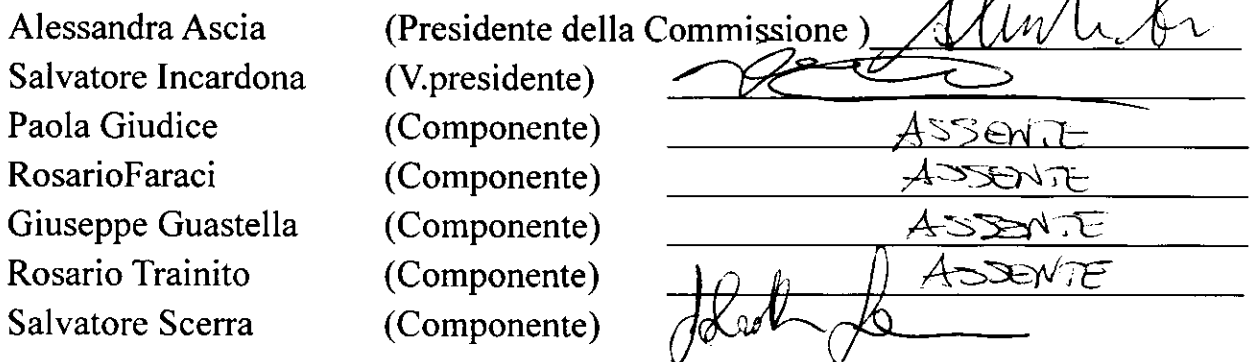 Alessandra Ascia (Presidente della Commissione )
Salvatore Incardona (V.presidente)
Paola Giudice (Componente) ASSENTE
RosarioFaraci (Componente) ASSENTE
Giuseppe Guastella (Componente) ASSENTE
Rosario Trainito (Componente) ASSENTE
Salvatore Scerra (Componente)